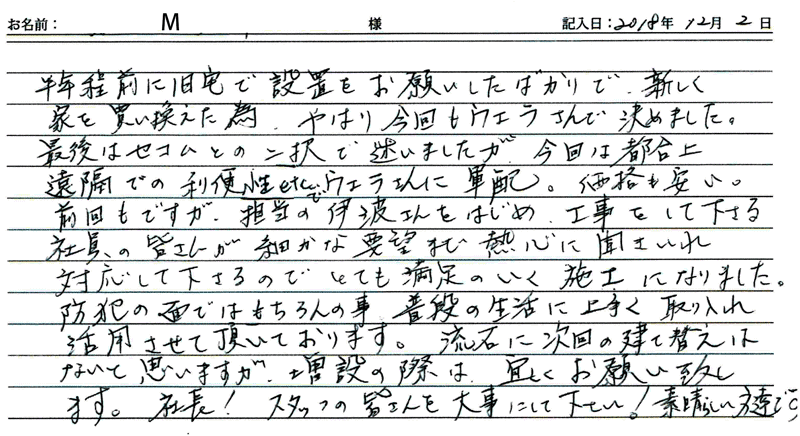 お名前： M 様 記入日：2018年 12月 2日
半年程前に旧宅で設置をお願いしたばかりで、新しく
家を買い換えた為、やはり今回もウェラさんで決めました。
最後はセコムとの二択で迷いましたが、今回は都合上
遠隔での利便性etcでウェラさんに軍配。価格も安い。
前回もですが、担当の伊波さんをはじめ、工事をして下さる
社員の皆さんが細かな要望まで熱心に聞き入れ
対応して下さるのでとても満足のいく施工になりました。
防犯の面ではもちろんの事、普段の生活に上手く取り入れ
活用させて頂いております。流石に次回の建て替えは
ないと思いますが、増設の際は、宜しくお願い致し
ます。社長！スタッフの皆さんを大事にして下さい！素晴らしい方達です。